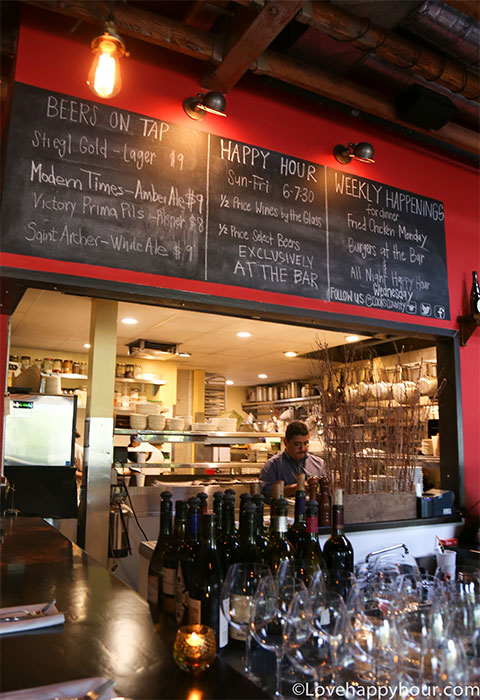 BEERS ON TAP
Stiegl Gold - Lager $9
Modern Times - Amber Ale $9
Victory Prima Pils - Pilsner $8
Saint Archer - White Ale $9
HAPPY HOUR
Sun-Fri 6-7:30
½ Price Wines by the Glass
½ Price Select Beers
EXCLUSIVELY
AT THE BAR
WEEKLY HAPPENINGS
for dinner
Fried Chicken Monday
Burgers at the Bar
All Night Happy Hour
Wednesday
FOLLOW US @COOKSCOUNTY
©Lovehappyhour.com